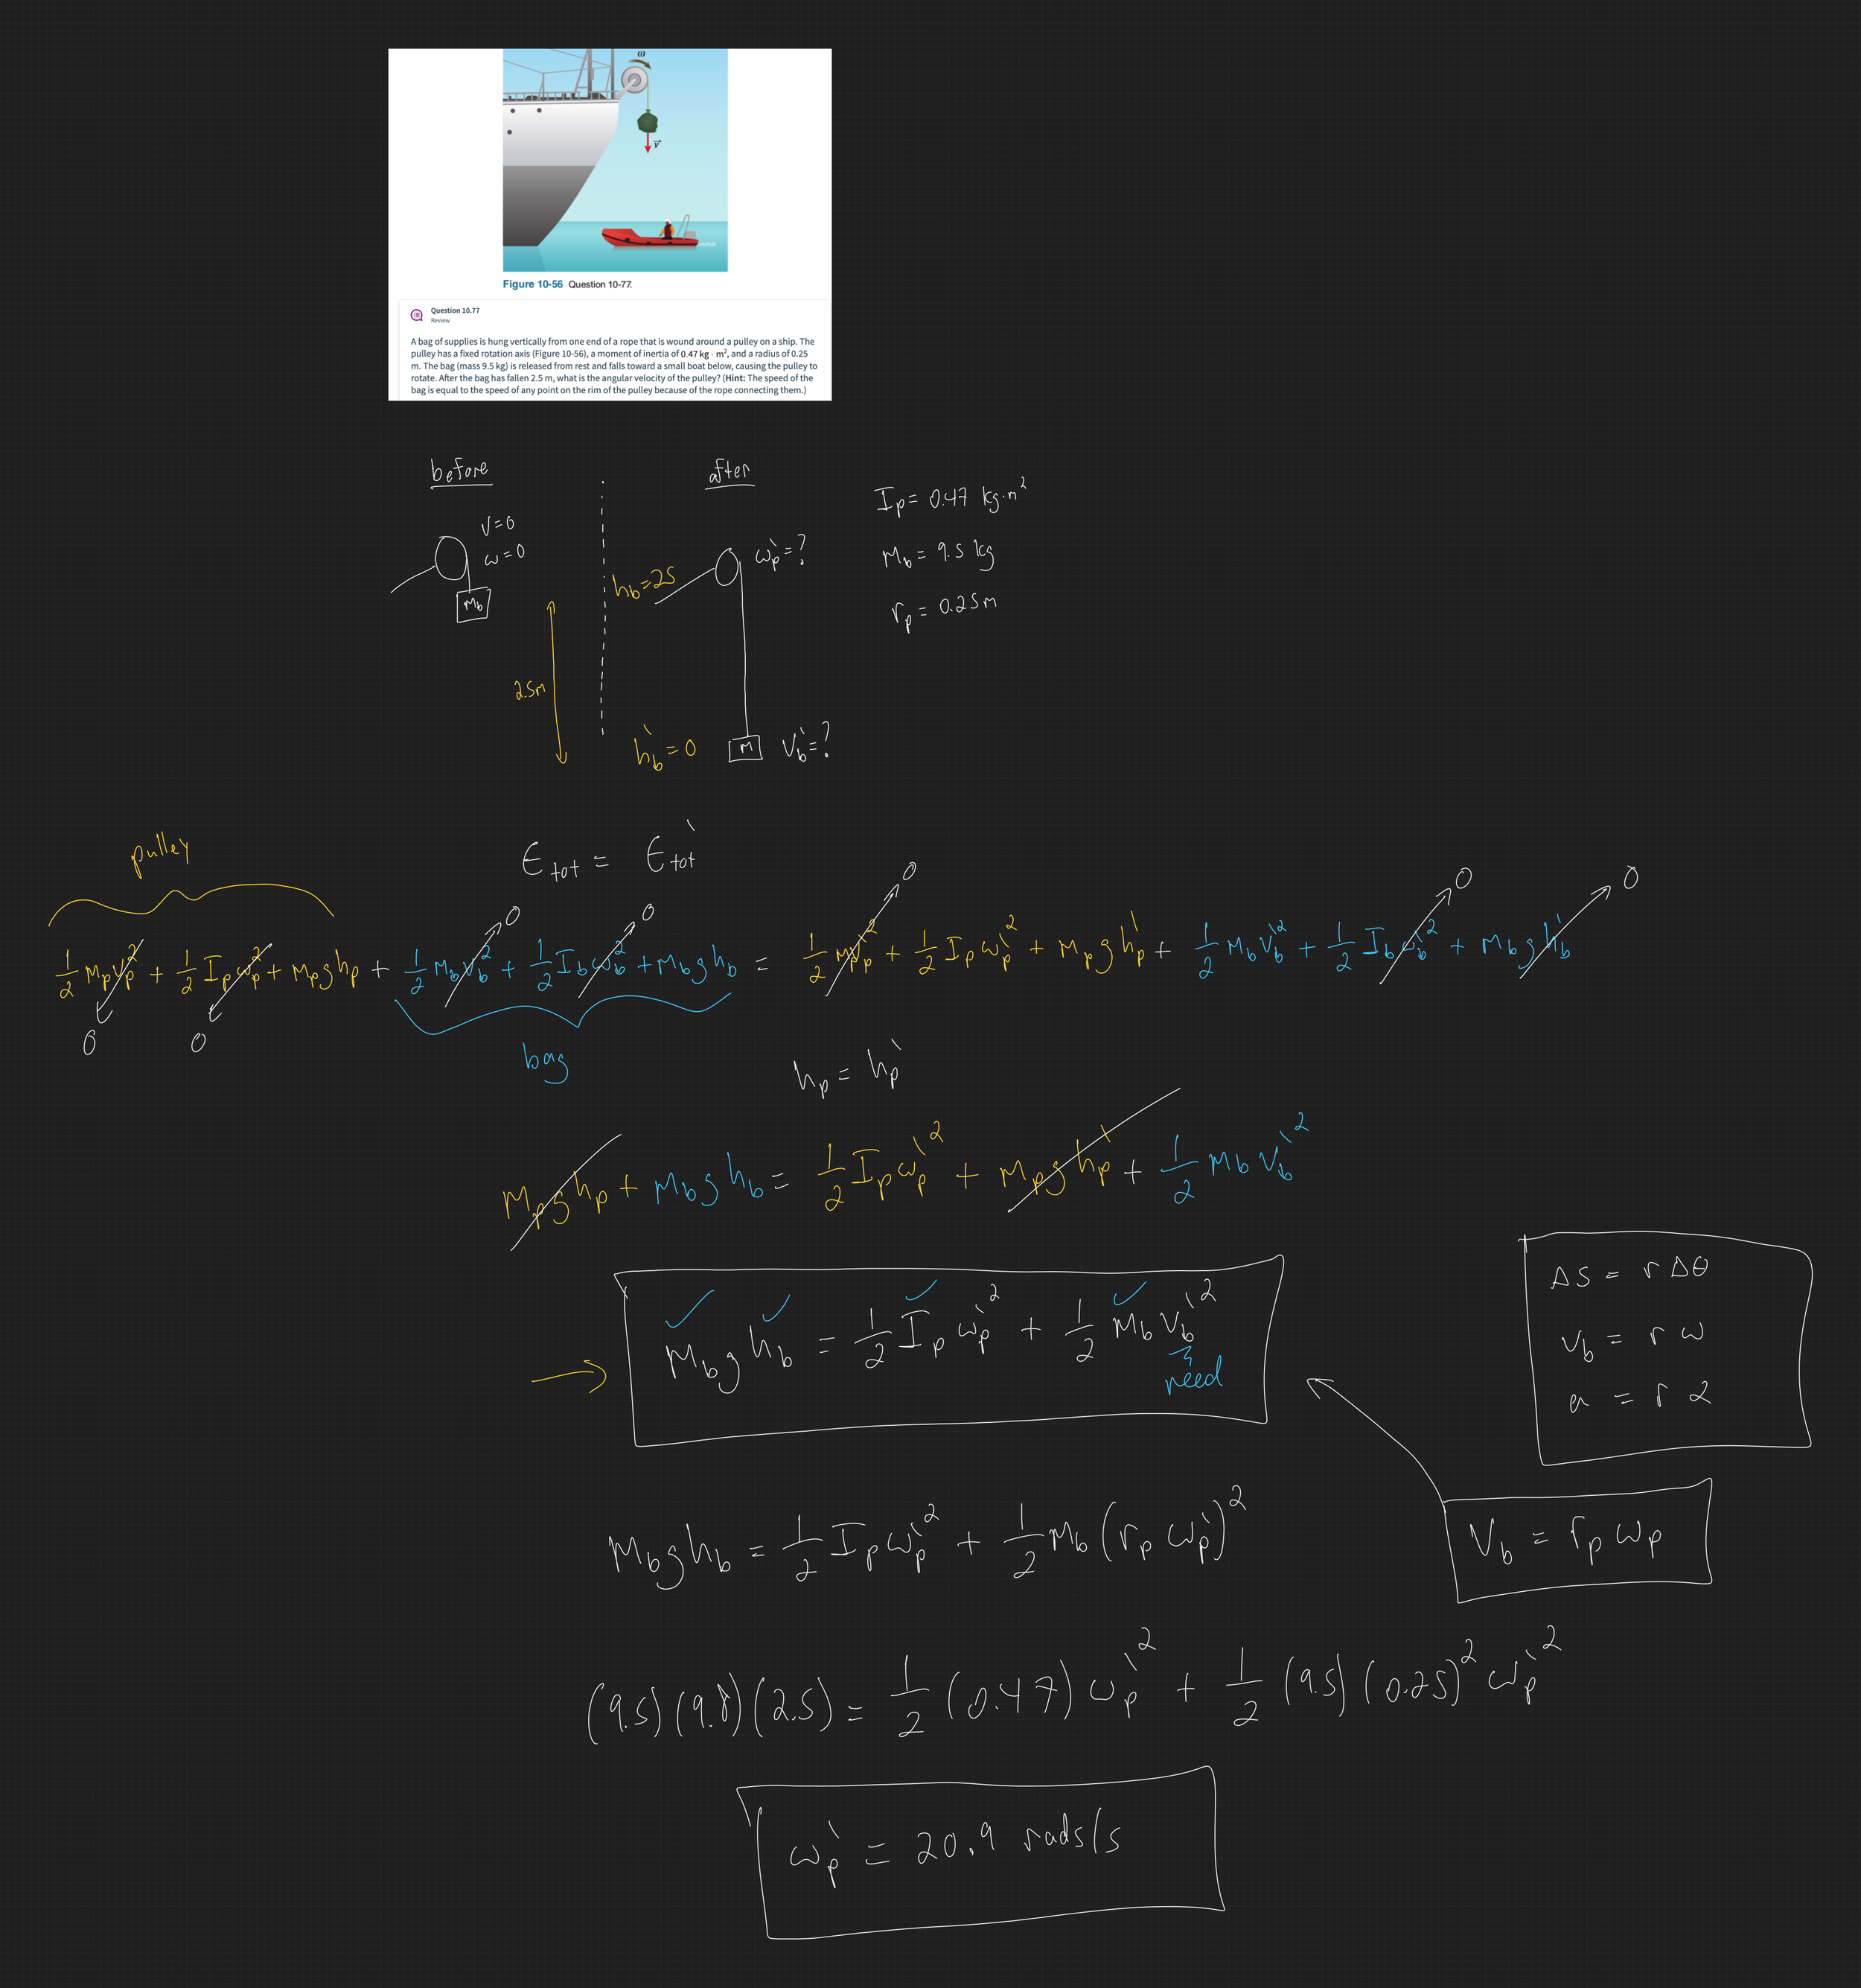 ω
v⃗
Figure 10-56 Question 10-77.
Question 10.77
Review
A bag of supplies is hung vertically from one end of a rope that is wound around a pulley on a ship. The
pulley has a fixed rotation axis (Figure 10-56), a moment of inertia of 0.47 kg · m², and a radius of 0.25
m. The bag (mass 9.5 kg) is released from rest and falls toward a small boat below, causing the pulley to
rotate. After the bag has fallen 2.5 m, what is the angular velocity of the pulley? (Hint: The speed of the
bag is equal to the speed of any point on the rim of the pulley because of the rope connecting them.)
before
after
V=0
ω=0
M_b
2.5m
h_b=25
ω_p'=?
h_b'=0
M
V_b'=?
I_p= 0.47 kg·m²
M_b= 9.5 kg
r_p= 0.25m
E_tot = E_tot'
pulley
0 0 0 0 0
½ M_p V_p² + ½ I_p ω_p² + M_p g h_p + ½ M_b V_b² + ½ I_b ω_b² + M_b g h_b = ½ M_p V_p'² + ½ I_p ω_p'² + M_p g h_p' + ½ M_b V_b'² + ½ I_b ω_b'² + M_b g h_b'
0 0
bag
h_p = h_p'
M_p g h_p + M_b g h_b = ½ I_p ω_p'² + M_p g h_p' + ½ M_b V_b'²
M_b g h_b = ½ I_p ω_p'² + ½ M_b V_b'²
need
ΔS = r Δθ
V_b = r ω
a = r α
V_b = r_p ω_p
M_b g h_b = ½ I_p ω_p'² + ½ M_b (r_p ω_p')²
(9.5)(9.8)(2.5) = ½ (0.47) ω_p'² + ½ (9.5)(0.25)² ω_p'²
ω_p' = 20.9 rads/s